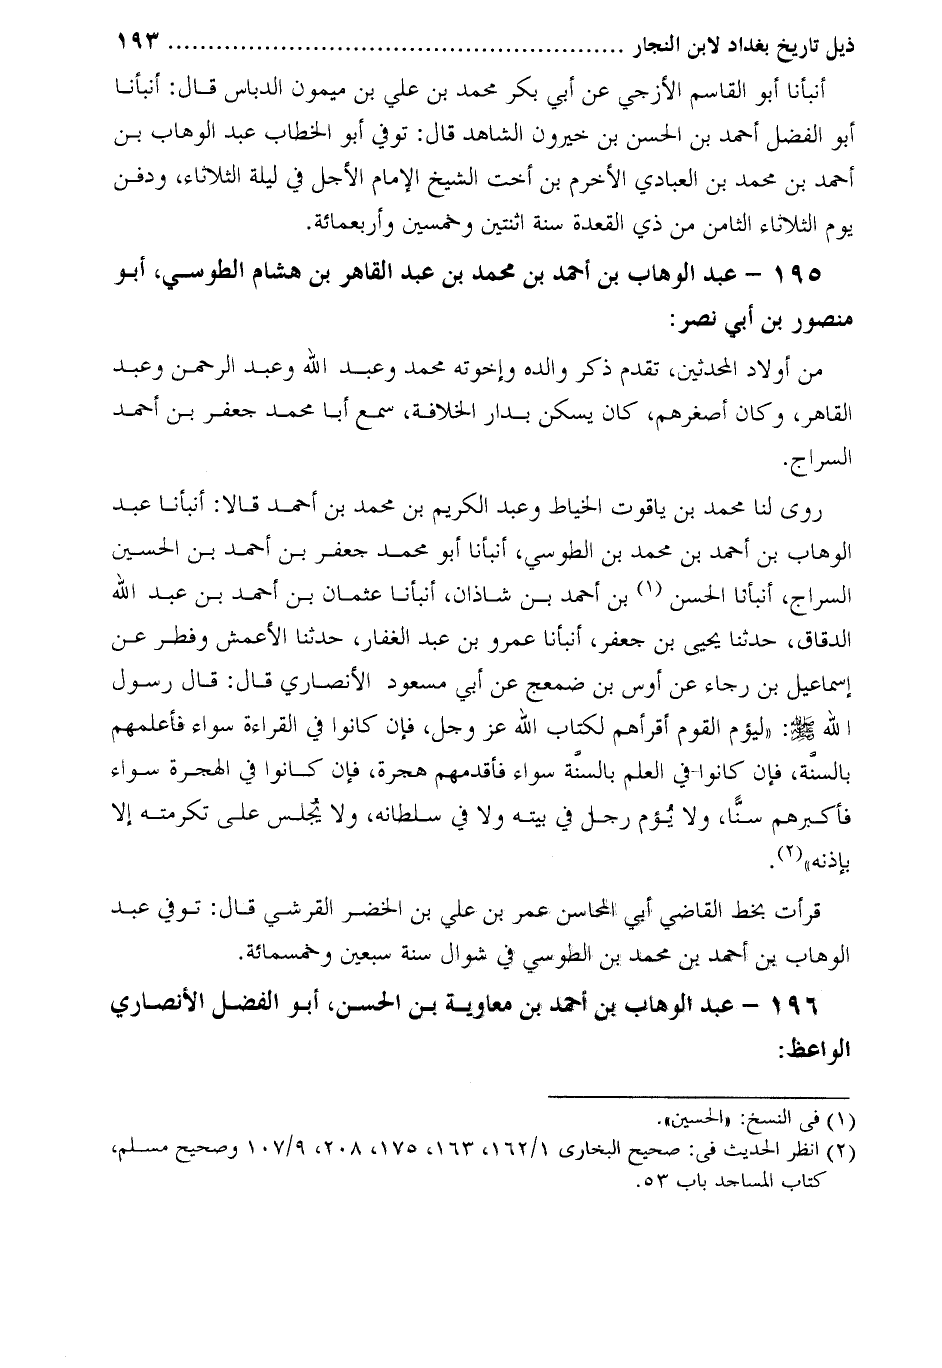 ذيل تاريخ بغداد لابن النجار ........................................................ ١٩٣
أنبأنا أبو القاسم الأزجي عن أبي بكر محمد بن علي بن ميمون الدباس قال: أنبأنا
أبو الفضل أحمد بن الحسن بن خيرون الشاهد قال: توفي أبو الخطاب عبد الوهاب بن
أحمد بن محمد بن العبادي الأخرم بن أخت الشيخ الإمام الأجل في ليلة الثلاثاء، ودفن
يوم الثلاثاء الثامن من ذي القعدة سنة اثنتين وخمسين وأربعمائة.
١٩٥ – عبد الوهاب بن أحمد بن محمد بن عبد القاهر بن هشام الطوسي، أبو
منصور بن أبي نصر:
من أولاد المحدثين، تقدم ذكر والده وإخوته محمد وعبد الله وعبد الرحمن وعبد
القاهر، وكان أصغرهم، كان يسكن بدار الخلافة، سمع أبا محمد جعفر بن أحمد
السراج.
روى لنا محمد بن ياقوت الخياط وعبد الكريم بن محمد بن أحمد قالا: أنبأنا عبد
الوهاب بن أحمد بن محمد بن الطوسي، أنبأنا أبو محمد جعفر بن أحمد بن الحسين
السراج، أنبأنا الحسن (١) بن أحمد بن شاذان، أنبأنا عثمان بن أحمد بن عبد الله
الدقاق، حدثنا يحيى بن جعفر، أنبأنا عمرو بن عبد الغفار، حدثنا الأعمش وفطر عن
إسماعيل بن رجاء عن أوس بن ضمعج عن أبي مسعود الأنصاري قال: قال رسول
الله ﷺ: «ليؤم القوم أقرأهم لكتاب الله عز وجل، فإن كانوا في القراءة سواء فأعلمهم
بالسنَّة، فإن كانوا في العلم بالسنَّة سواء فأقدمهم هجرة، فإن كانوا في الهجرة سواء
فأكبرهم سنًّا، ولا يُؤم رجل في بيته ولا في سلطانه، ولا يُجلس على تكرمته إلا
بإذنه»(٢).
قرأت بخط القاضي أبي المحاسن عمر بن علي بن الخضر القرشي قال: توفي عبد
الوهاب بن أحمد بن محمد بن الطوسي في شوال سنة سبعين وخمسمائة.
١٩٦ – عبد الوهاب بن أحمد بن معاوية بن الحسن، أبو الفضل الأنصاري
الواعظ:
(١) في النسخ: «الحسين».
(٢) انظر الحديث في: صحيح البخاري ١٦٢/١، ١٦٣، ١٧٥، ٢٠٨، ١٠٧/٩ وصحيح مسلم،
كتاب المساجد باب ٥٣.